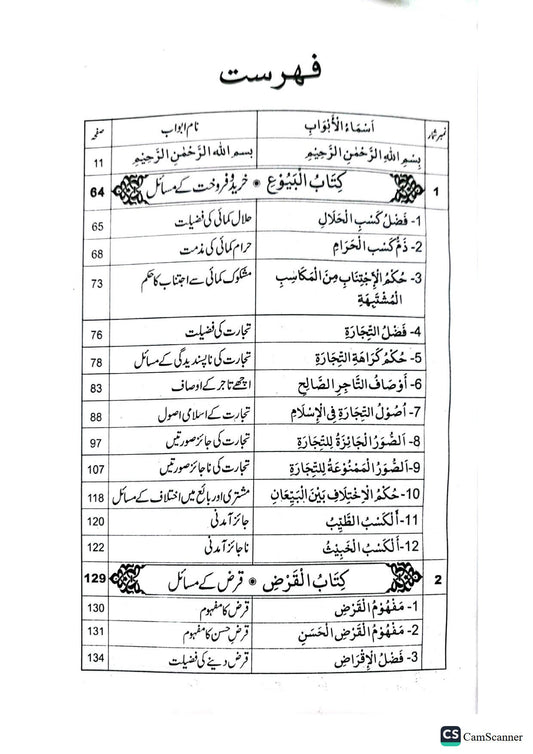 فہرست
نمبر شمار اَسْمَاءُ الْأَبْوَابِ نام ابواب صفحہ
بِسْمِ اللهِ الرَّحْمٰنِ الرَّحِيْمِ بسم الله الرَّحْمٰنِ الرَّحِيْمِ 11
1 كِتَابُ الْبُيُوْعِ • خرید و فروخت کے مسائل 64
1- فَضْلُ كَسْبِ الْحَلَالِ حلال کمائی کی فضیلت 65
2- ذَمُّ كَسْبِ الْحَرَامِ حرام کمائی کی مذمت 68
3- حُكْمُ الْإِجْتِنَابِ مِنَ الْمَكَاسِبِ مشکوک کمائی سے اجتناب کا حکم 73
الْمُشْتَبِهَةِ
4- فَضْلُ التِّجَارَةِ تجارت کی فضیلت 76
5- حُكْمُ كَرَاهَةِ التِّجَارَةِ تجارت کی ناپسندیدگی کے مسائل 78
6- أَوْصَافُ التَّاجِرِ الصَّالِحِ اچھے تاجر کے اوصاف 83
7- اُصُوْلُ التِّجَارَةِ فِي الْإِسْلَامِ تجارت کے اسلامی اصول 88
8- اَلصُّوَرُ الْجَائِزَةُ لِلتِّجَارَةِ تجارت کی جائز صورتیں 97
9- اَلصُّوَرُ الْمَمْنُوْعَةُ لِلتِّجَارَةِ تجارت کی ناجائز صورتیں 107
10- حُكْمُ الْاِخْتِلَافِ بَيْنَ الْبَيِّعَانِ مشتری اور بائع میں اختلاف کے مسائل 118
11- اَلْكَسْبُ الطَّيِّبُ جائز آمدنی 120
12- اَلْكَسْبُ الْخَبِيْثُ ناجائز آمدنی 122
2 كِتَابُ الْقَرْضِ • قرض کے مسائل 129
1- مَفْهُوْمُ الْقَرْضِ قرض کا مفہوم 130
2- مَفْهُوْمُ الْقَرْضِ الْحَسَنِ قرض حسن کا مفہوم 131
3- فَضْلُ الْإِقْرَاضِ قرض دینے کی فضیلت 134
CS CamScanner